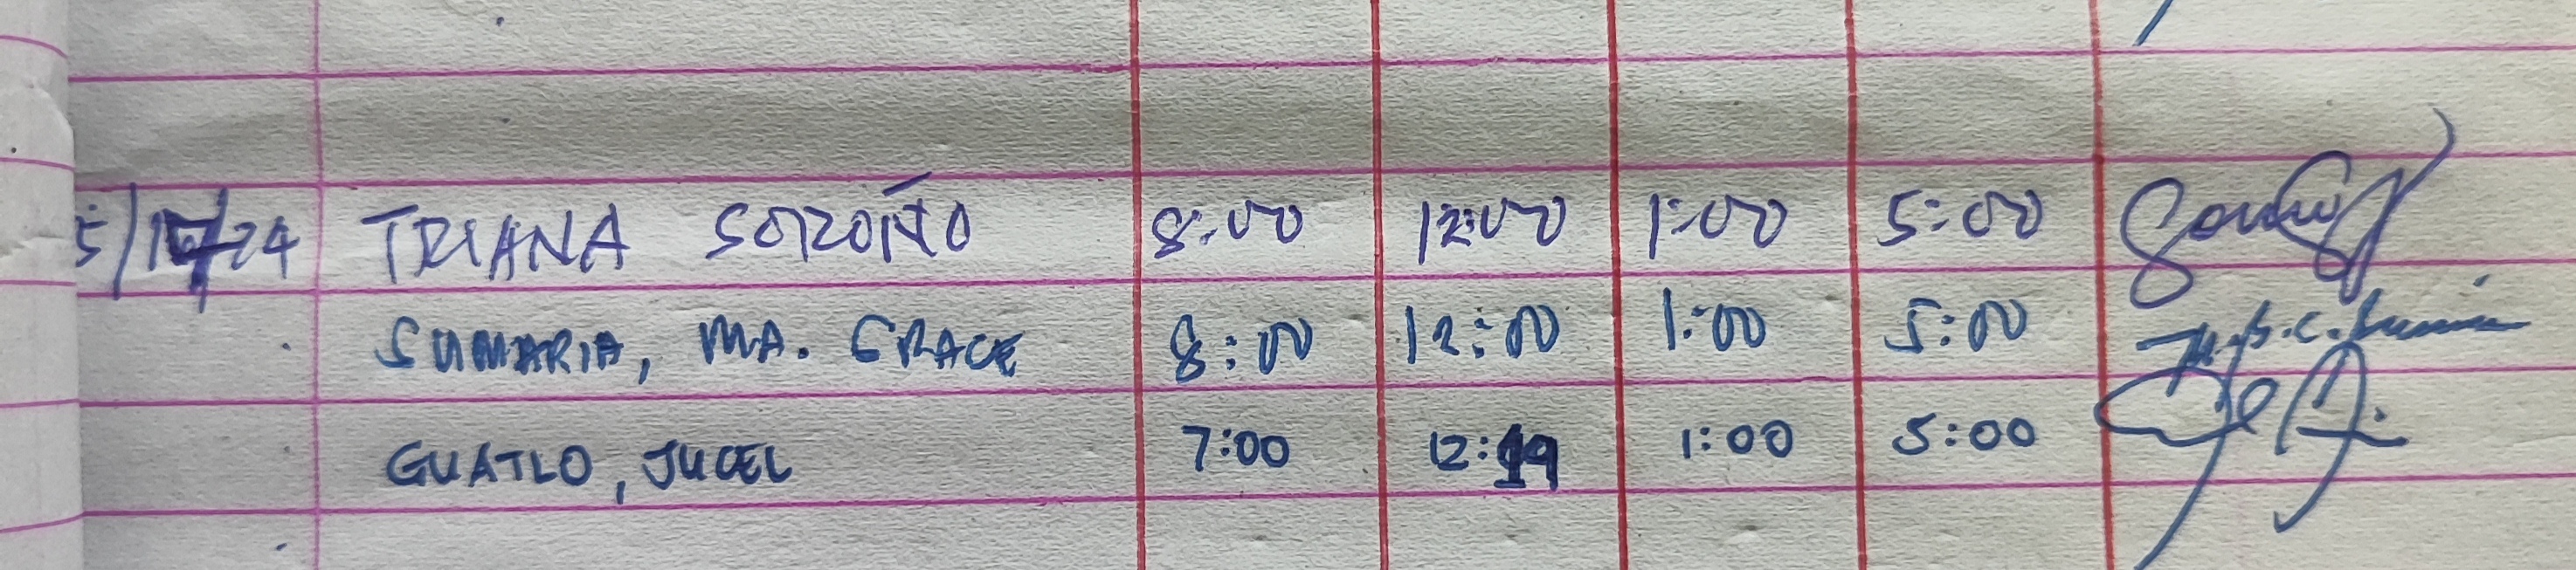 5/17/24 TRIANA SOROÑO 8:00 12:00 1:00 5:00
SUMARIA, MA. GRACE 8:00 12:00 1:00 5:00
GUATLO, JUCEL 7:00 12:19 1:00 5:00